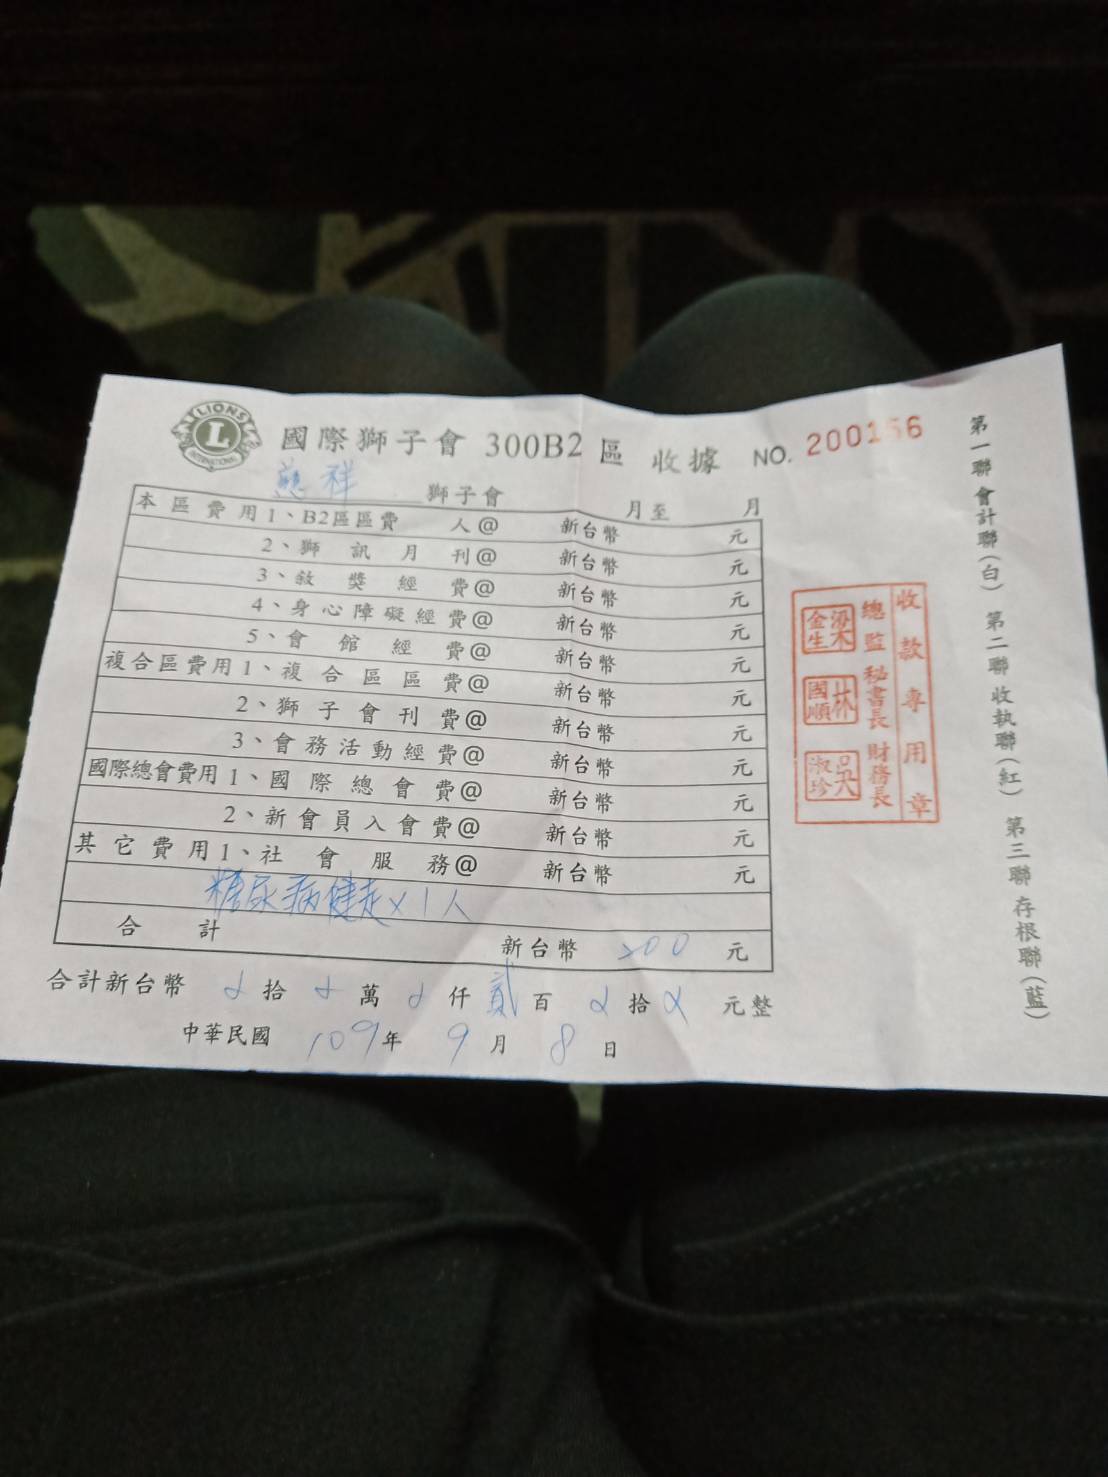 LIONS
L
INTERNATIONAL
國際獅子會 300B2 區 收據 NO. 200156
慈祥 獅子會 月至 月
本區費用1、B2區區費 人@ 新台幣 元
2、獅訊月刊@ 新台幣 元
3、敘獎經費@ 新台幣 元
4、身心障礙經費@ 新台幣 元
5、會館經費@ 新台幣 元
複合區費用1、複合區區費@ 新台幣 元
2、獅子會刊費@ 新台幣 元
3、會務活動經費@ 新台幣 元
國際總會費用1、國際總會費@ 新台幣 元
2、新會員入會費@ 新台幣 元
其它費用1、社會服務@ 新台幣 元
糖尿病健走×1人
合計 新台幣 200 元
合計新台幣 拾 萬 仟 貳 百 拾 元整
中華民國 109年 9月 8日
收款專用章
總監 秘書長 財務長
金生
林國順
吳淑珍
第一聯會計聯(白) 第二聯收執聯(紅) 第三聯存根聯(藍)